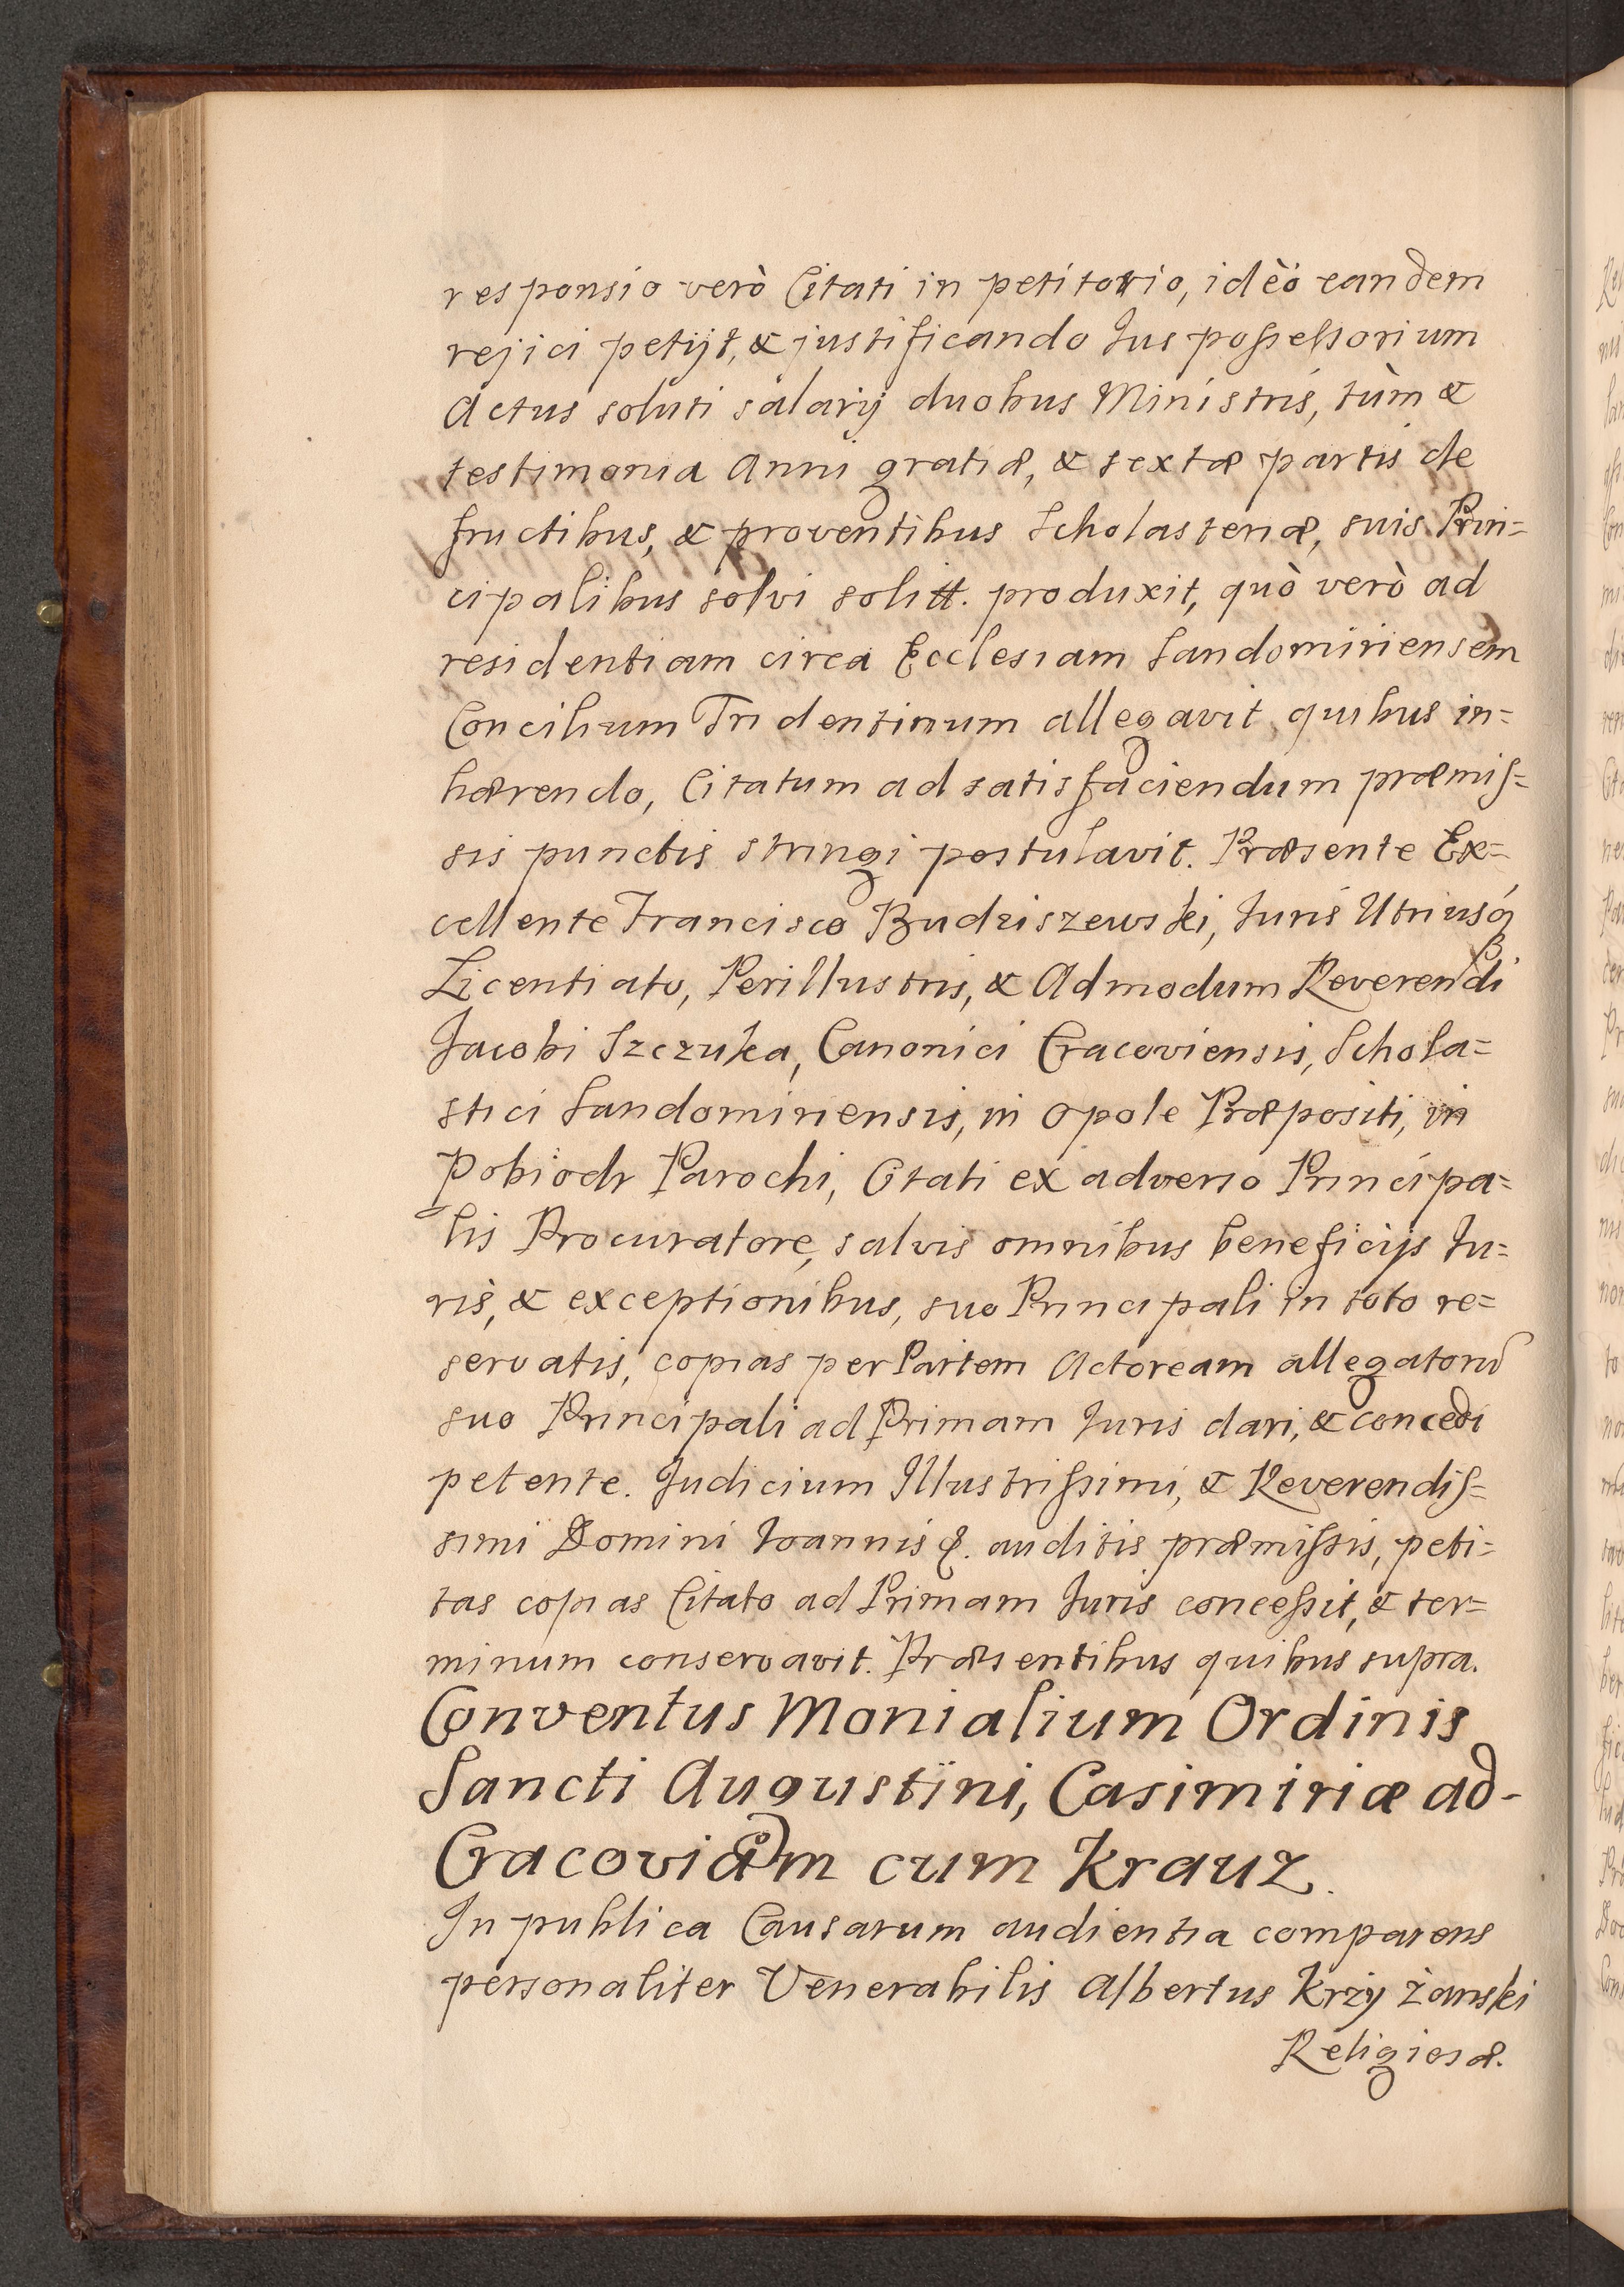 responsio verò Citati in petitorio, idèo eandem
rejici petijt, & justificando Jus possessorium
Actus soluti salarij duobus Ministris, tùm &
testimonia Anni gratiæ, & sextæ partis de
fructibus, & proventibus Scholasteriæ, suis Prin=
cipalibus solvi solitt. produxit, quò verò ad
residentiam circa Ecclesiam Sandomiriensem
Concilium Tridentinum allegavit, quibus in=
hærendo, Citatum ad satisfaciendum præmis=
sis punctis stringi postulavit. Præsente Ex=
cellente Francisco Budziszewski, Juris Utriusq
Licentiato, Perillustris, & Admodum Reverendi
Jacobi Szczuka, Canonici Cracoviensis, Schola=
stici Sandomiriensis, in Opole Præpositi, in
Pobiodr Parochi, Citati ex adverso Principa=
lis Procuratore, salvis omnibus beneficijs Ju=
ris, & exceptionibus, suo Principali in toto re=
servatis, copias per Partem Actoream allegatorũ
suo Principali ad Primam Juris dari, & concedi
petente. Judicium Illustrissimi, & Reverendis=
simi Domini Joannis &. auditis præmissis, peti=
tas copias Citato ad Primam Juris concessit, & ter=
minum conservavit. Præsentibus quibus supra.
Conventus Monialium Ordinis
Sancti Augustini, Casimiriæ ad-
Cracoviam cum Krauz.
In publica Causarum audientia comparens
personaliter Venerabilis Albertus Krzyżanski
Religiosæ.